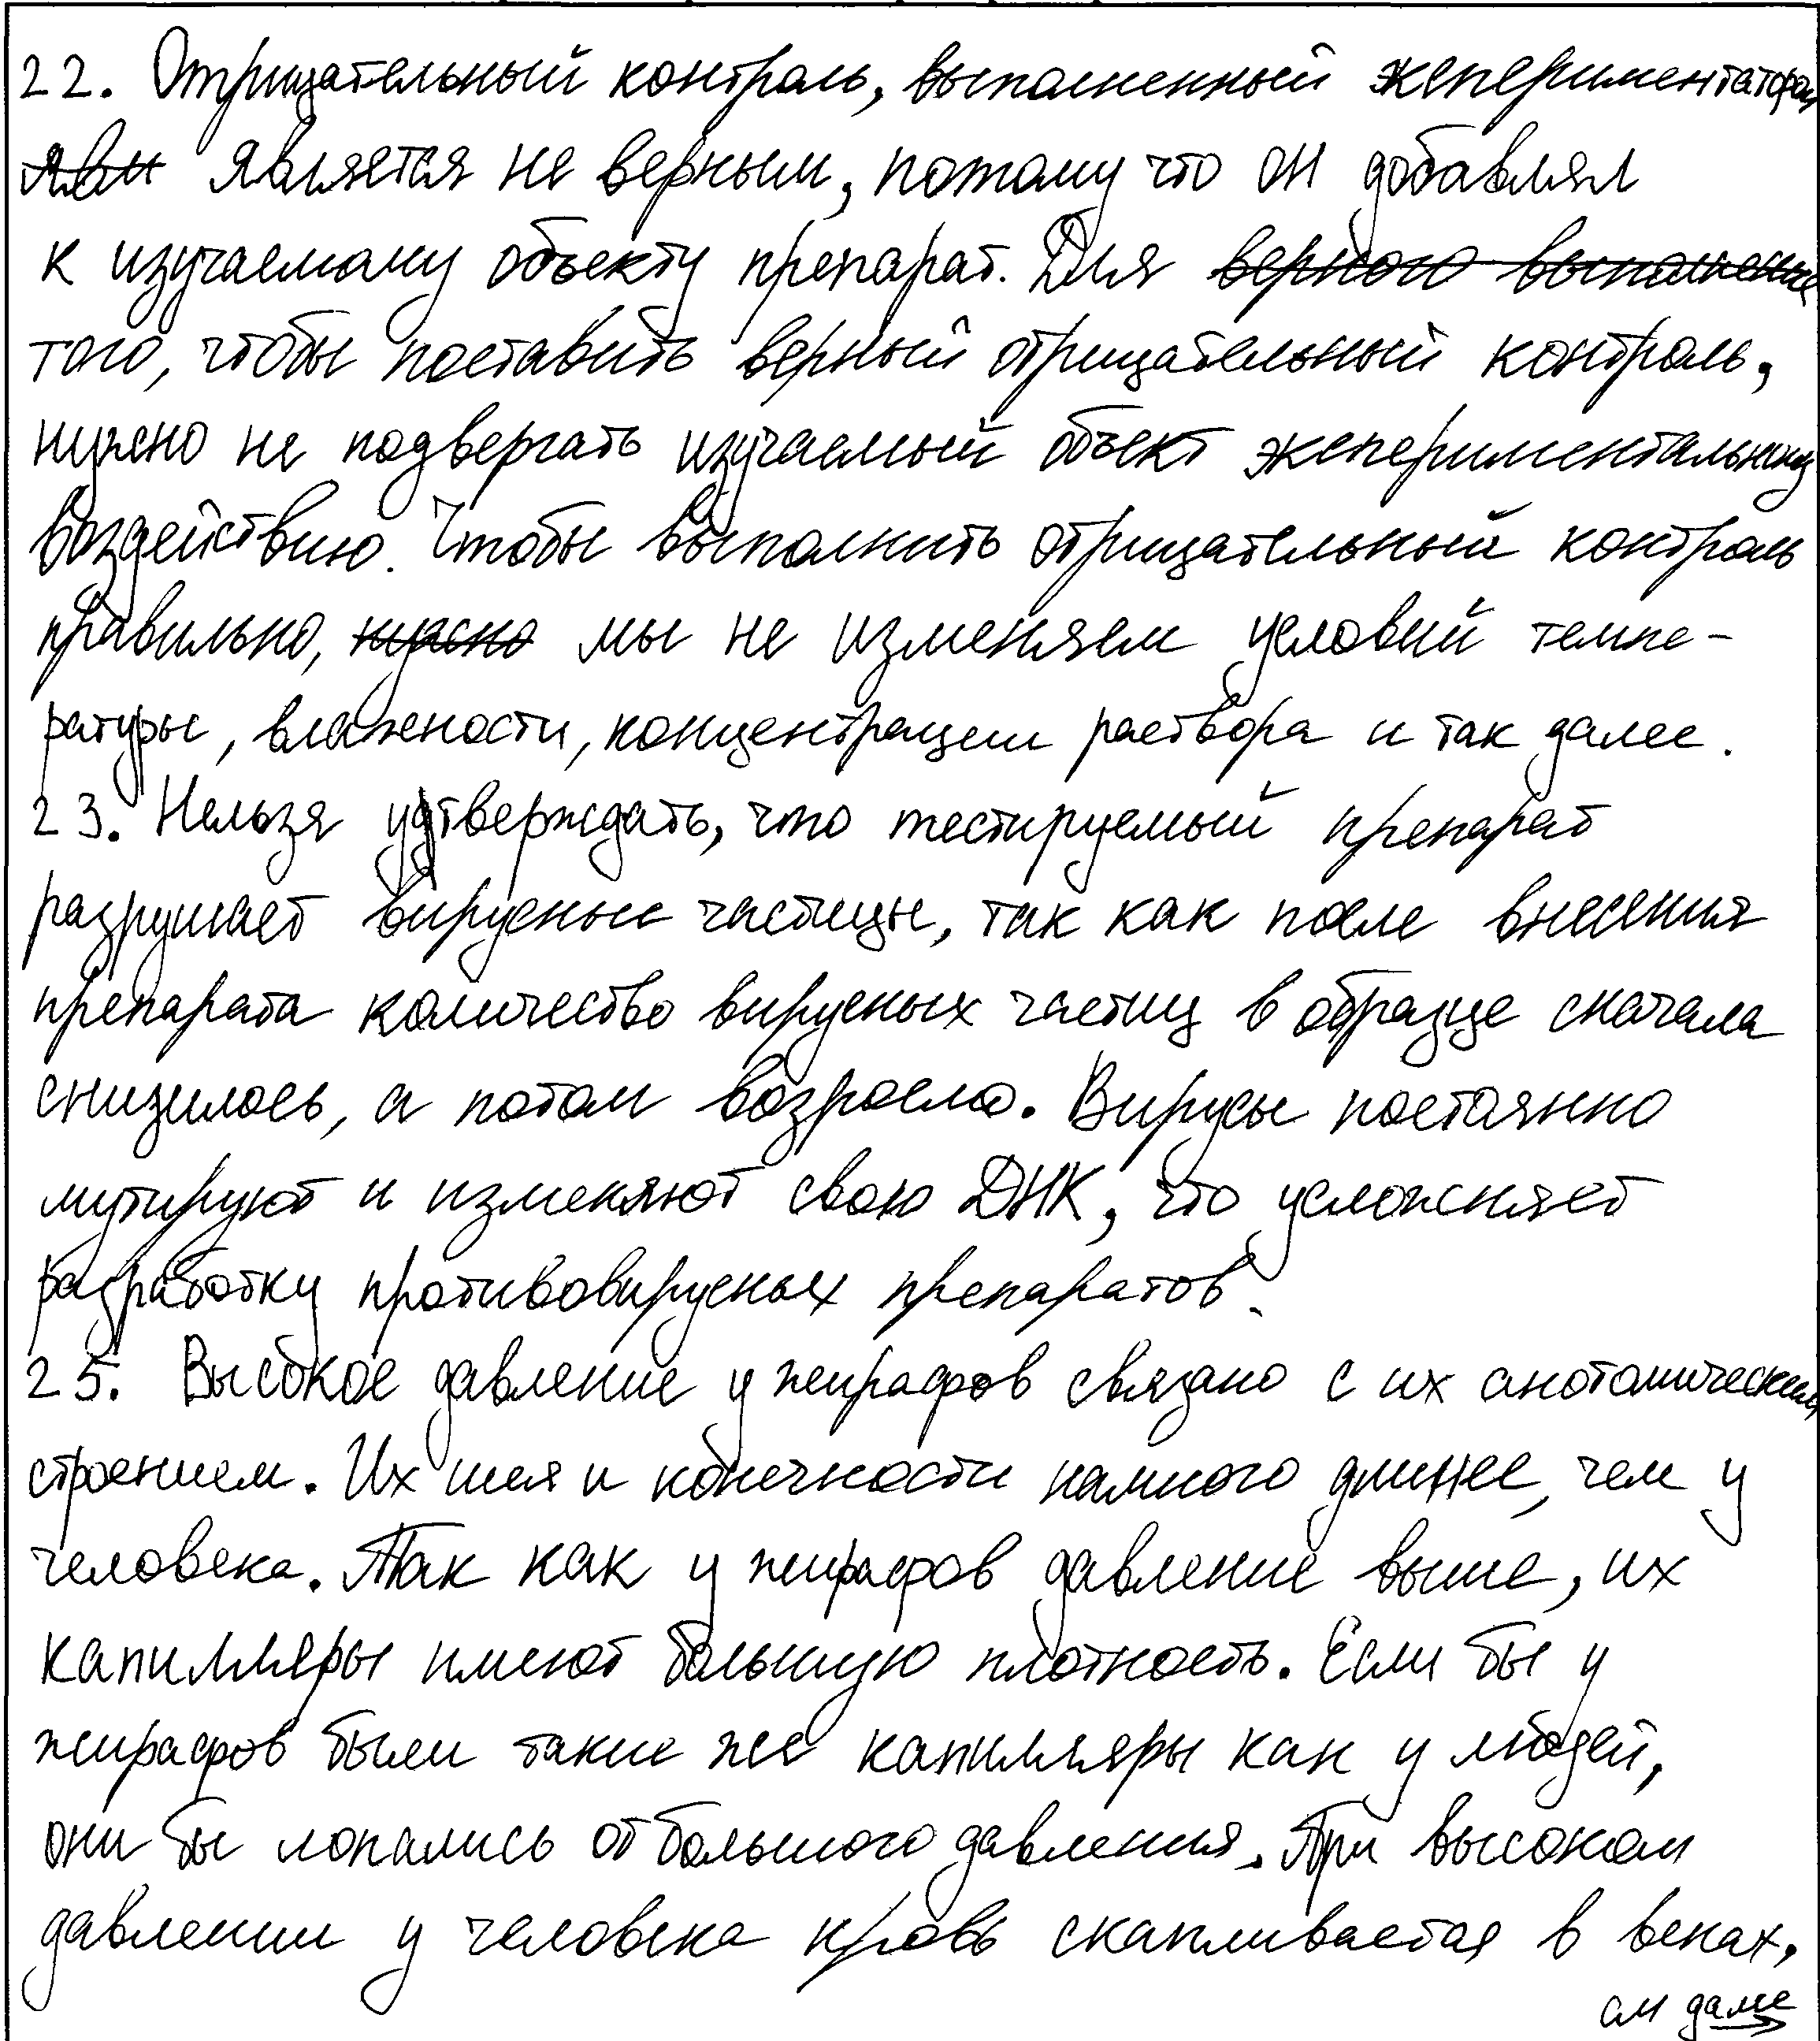 22. Отрицательный контроль, выполненный экспериментатором
является не верным, потому что он добавлял
к изучаемому объекту препарат. Для верного выполнения
того, чтобы поставить верный отрицательный контроль,
нужно не подвергать изучаемый объект экспериментальному
воздействию. Чтобы выполнить отрицательный контроль
правильно, нужно мы не изменяем условий темпе-
ратуры, влажности, концентрации раствора и так далее.
23. Нельзя утверждать, что тестируемый препарат
разрушает вирусные частицы, так как после внесения
препарата количество вирусных частиц в образце сначала
снизилось, а потом возросло. Вирусы постоянно
мутируют и изменяют свою ДНК, что усложняет
разработку противовирусных препаратов.
25. Высокое давление у жирафов связано с их анотомическим
строением. Их шея и конечности намного длинее, чем у
человека. Так как у жирафов давление выше, их
капилляры имеют большую плотность. Если бы у
жирафов были такие же капилляры как у людей,
они бы лопались от большого давления. При высоком
давлении у человека кровь скапливается в венах,
см далее